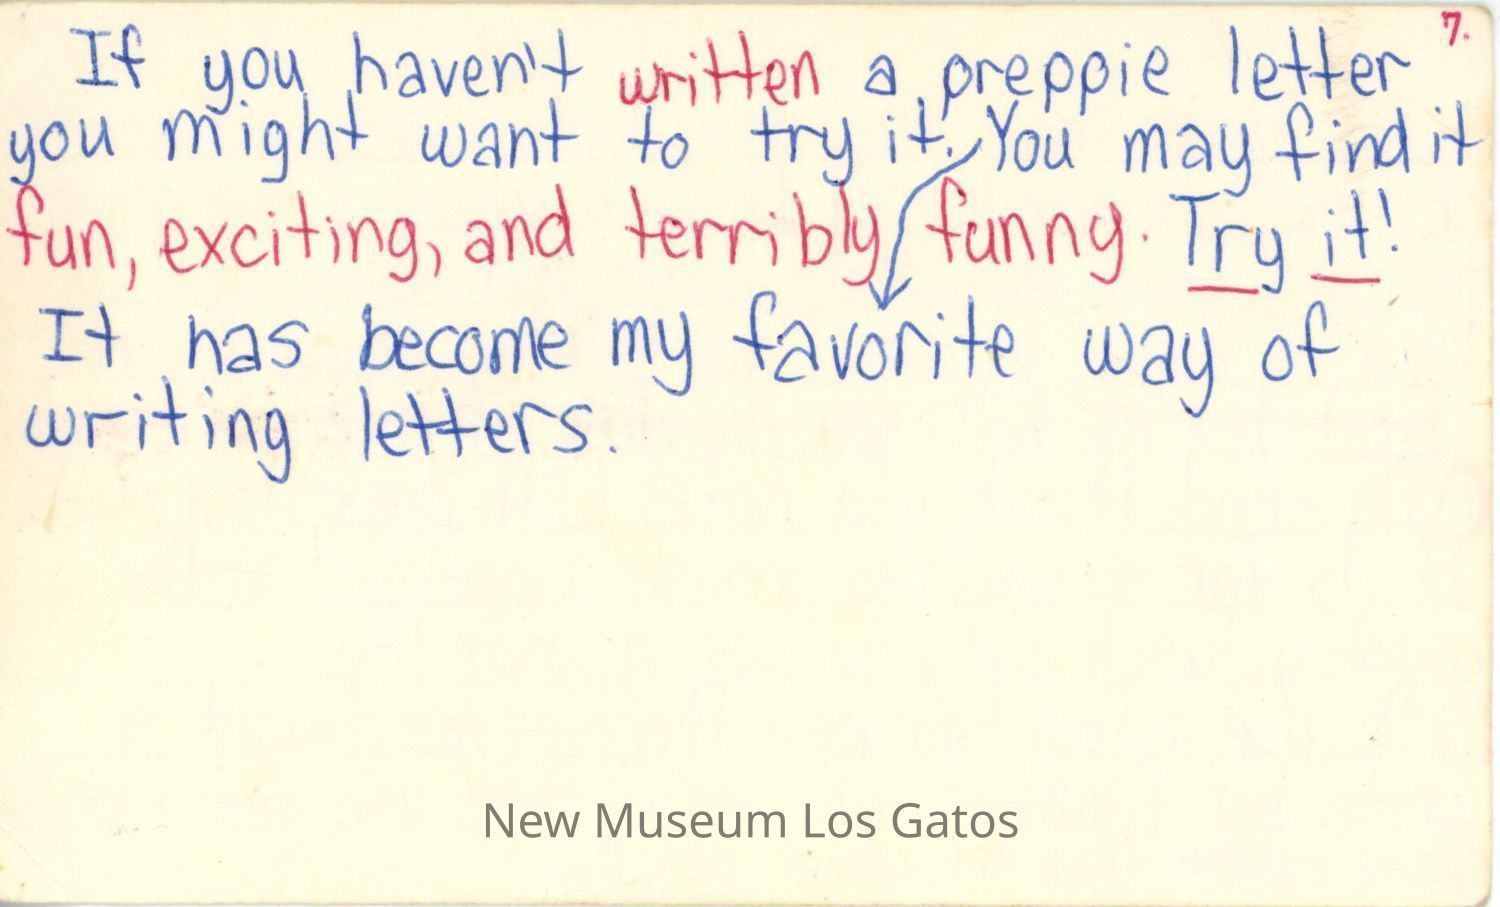 7.
If you haven't written a preppie letter
you might want to try it. You may find it
fun, exciting, and terribly funny. Try it!
It has become my favorite way of
writing letters.
New Museum Los Gatos